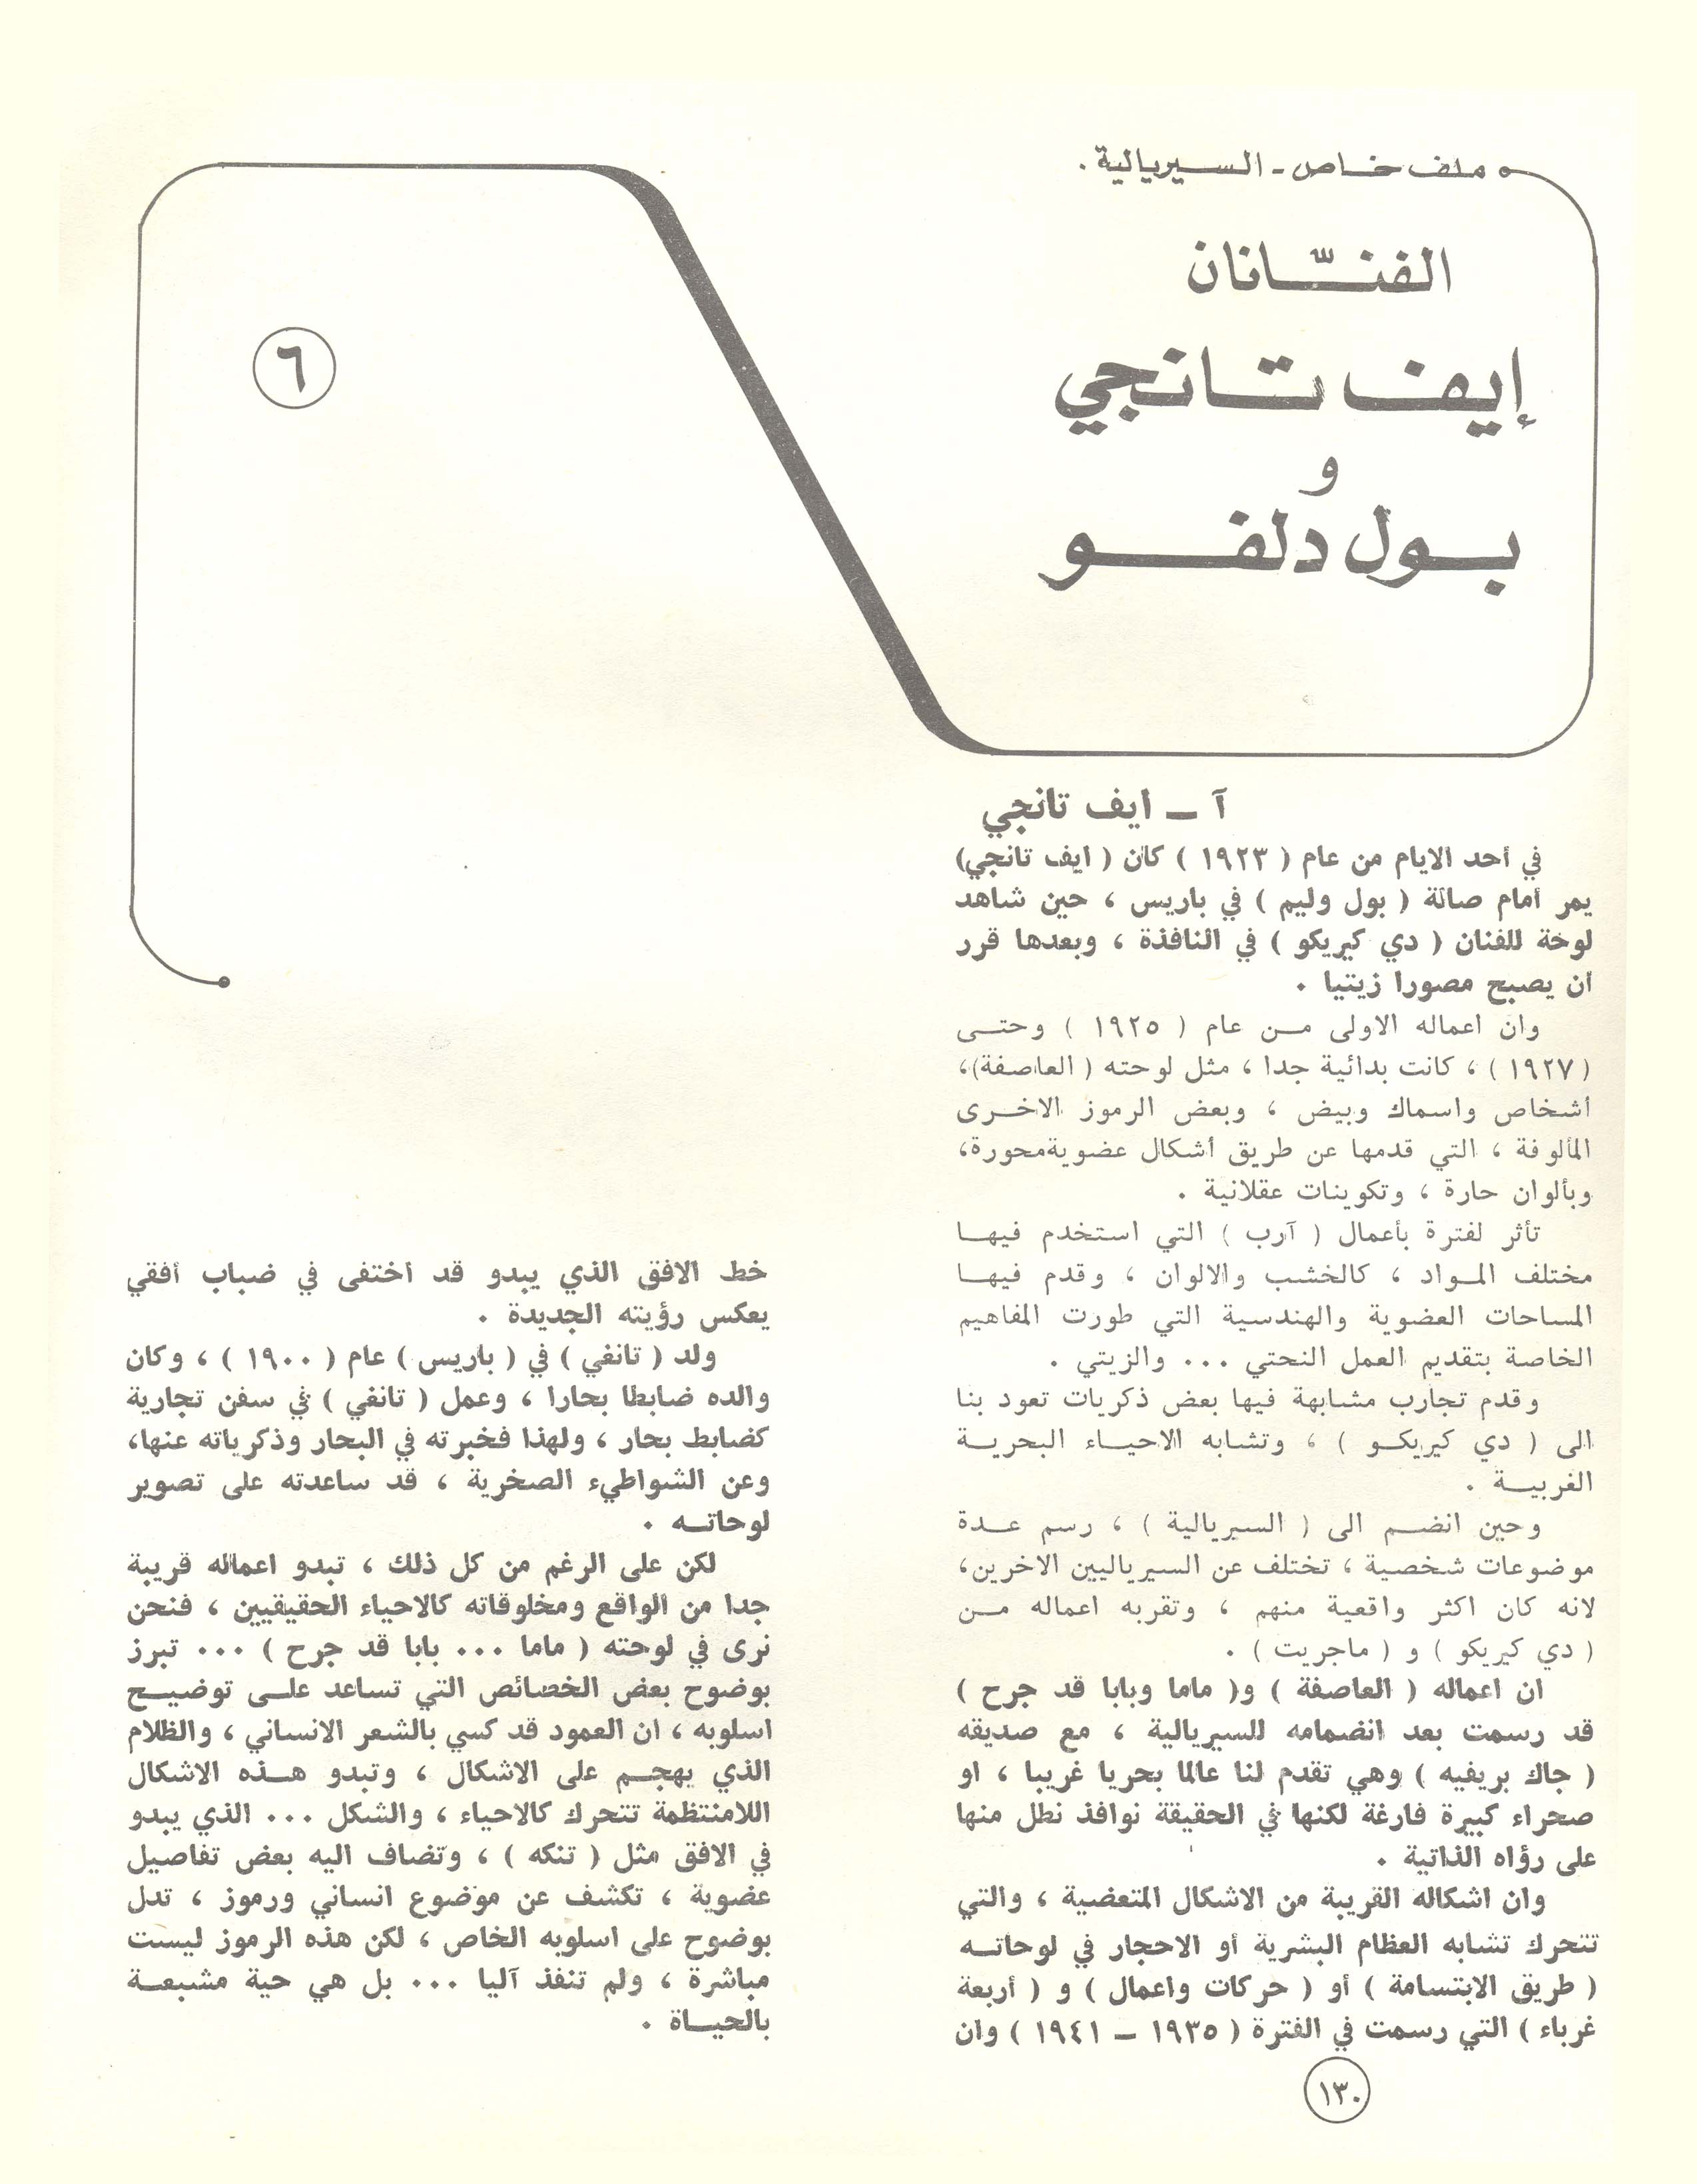 ملف خاص - السيريالية .
الفنّانان
إيف تانجي
و
بول دلفو
٦
آ ـ ايف تانجي
في أحد الايام من عام ( ١٩٢٣ ) كان ( ايف تانجي)
يمر أمام صالة ( بول وليم ) في باريس ، حين شاهد
لوحة للفنان ( دي كيريكو ) في النافذة ، وبعدها قرر
ان يصبح مصورا زيتيا .
وان اعماله الاولى من عام ( ١٩٢٥ ) وحتى
( ١٩٢٧ ) ، كانت بدائية جدا ، مثل لوحته ( العاصفة)،
أشخاص واسماك وبيض ، وبعض الرموز الاخرى
المألوفة ، التي قدمها عن طريق أشكال عضويةمحورة،
وبألوان حارة ، وتكوينات عقلانية .
تأثر لفترة بأعمال ( آرب ) التي استخدم فيها
مختلف المواد ، كالخشب والالوان ، وقدم فيها
المساحات العضوية والهندسية التي طورت المفاهيم
الخاصة بتقديم العمل النحتي ... والزيتي .
وقدم تجارب مشابهة فيها بعض ذكريات تعود بنا
الى ( دي كيريكو ) ، وتشابه الاحياء البحرية
الغربية .
وحين انضم الى ( السيريالية ) ، رسم عدة
موضوعات شخصية ، تختلف عن السيرياليين الاخرين،
لانه كان اكثر واقعية منهم ، وتقربه اعماله من
( دي كيريكو ) و ( ماجريت ) .
ان اعماله ( العاصفة ) و( ماما وبابا قد جرح )
قد رسمت بعد انضمامه للسيريالية ، مع صديقه
( جاك بريفيه ) وهي تقدم لنا عالما بحريا غريبا ، او
صحراء كبيرة فارغة لكنها في الحقيقة نوافذ نطل منها
على رؤاه الذاتية .
وان اشكاله القريبة من الاشكال المتعضية ، والتي
تتحرك تشابه العظام البشرية أو الاحجار في لوحاته
( طريق الابتسامة ) أو ( حركات واعمال ) و ( أربعة
غرباء ) التي رسمت في الفترة ( ١٩٣٥ ـ ١٩٤١ ) وان
خط الافق الذي يبدو قد اختفى في ضباب أفقي
يعكس رؤيته الجديدة .
ولد ( تانغي ) في ( باريس ) عام ( ١٩٠٠ ) ، وكان
والده ضابطا بحارا ، وعمل ( تانغي ) في سفن تجارية
كضابط بحار ، ولهذا فخبرته في البحار وذكرياته عنها،
وعن الشواطيء الصخرية ، قد ساعدته على تصوير
لوحاته .
لكن على الرغم من كل ذلك ، تبدو اعماله قريبة
جدا من الواقع ومخلوقاته كالاحياء الحقيقيين ، فنحن
نرى في لوحته ( ماما ... بابا قد جرح ) ... تبرز
بوضوح بعض الخصائص التي تساعد على توضيح
اسلوبه ، ان العمود قد كسي بالشعر الانساني ، والظلام
الذي يهجم على الاشكال ، وتبدو هذه الاشكال
اللامنتظمة تتحرك كالاحياء ، والشكل ... الذي يبدو
في الافق مثل ( تنكه ) ، وتضاف اليه بعض تفاصيل
عضوية ، تكشف عن موضوع انساني ورموز ، تدل
بوضوح على اسلوبه الخاص ، لكن هذه الرموز ليست
مباشرة ، ولم تنفذ آليا ... بل هي حية مشبعة
بالحياة .
١٣٠